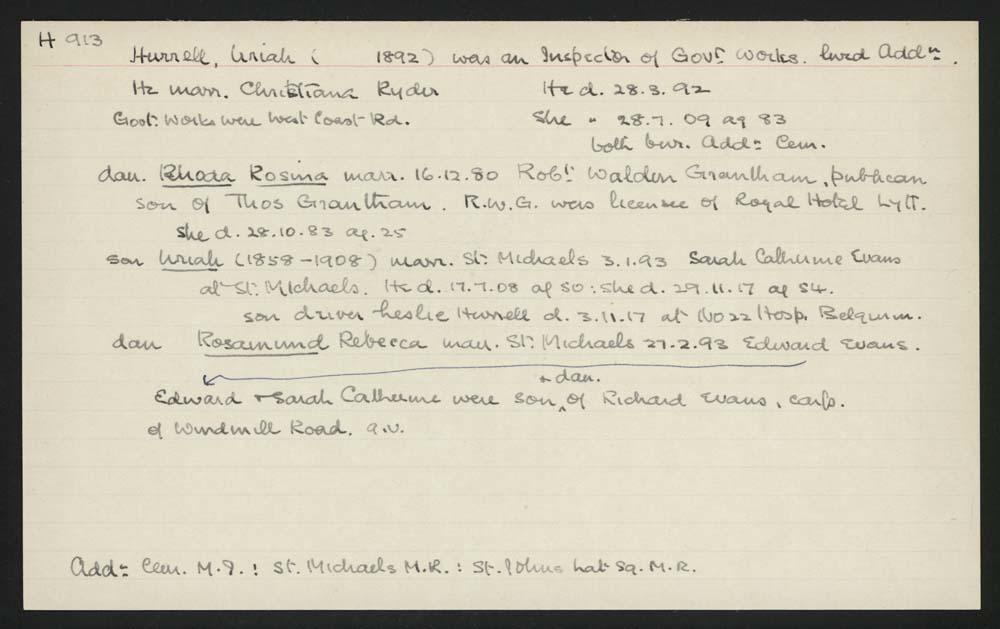 H 913
Hurrell, Uriah (        1892) was an Inspector of Govt. Works. lived Addn.
He marr. Christiana Ryder          He d. 28.3.92
Govt. Works were West Coast Rd.          She " 28.7.09 ag 83
both bur. Addn. Cem.
dau. Rhoda Rosina marr. 16.12.80 Robt. Walden Grantham, publican
son of Thos Grantham. R.W.G. was licensee of Royal Hotel Lytt.
She d. 28.10.83 ag. 25
son Uriah (1858-1908) marr. St. Michaels 3.1.93 Sarah Catherine Evans
at St. Michaels. He d. 17.7.08 ag 50: she d. 29.11.17 ag 54.
son driver Leslie Hurrell d. 3.11.17 at No 22 Hosp. Belgium.
dau Rosamund Rebecca marr. St. Michaels 27.2.93 Edward Evans.
+ dau.
Edward + Sarah Catherine were son of Richard Evans, carp.
of Windmill Road. q.v.
Addn. Cem. M.I. : St. Michaels M.R. : St. Johns Lat. Sq. M.R.